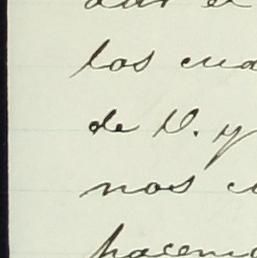 dar el
los cua
de V. y
nos c
hacemo